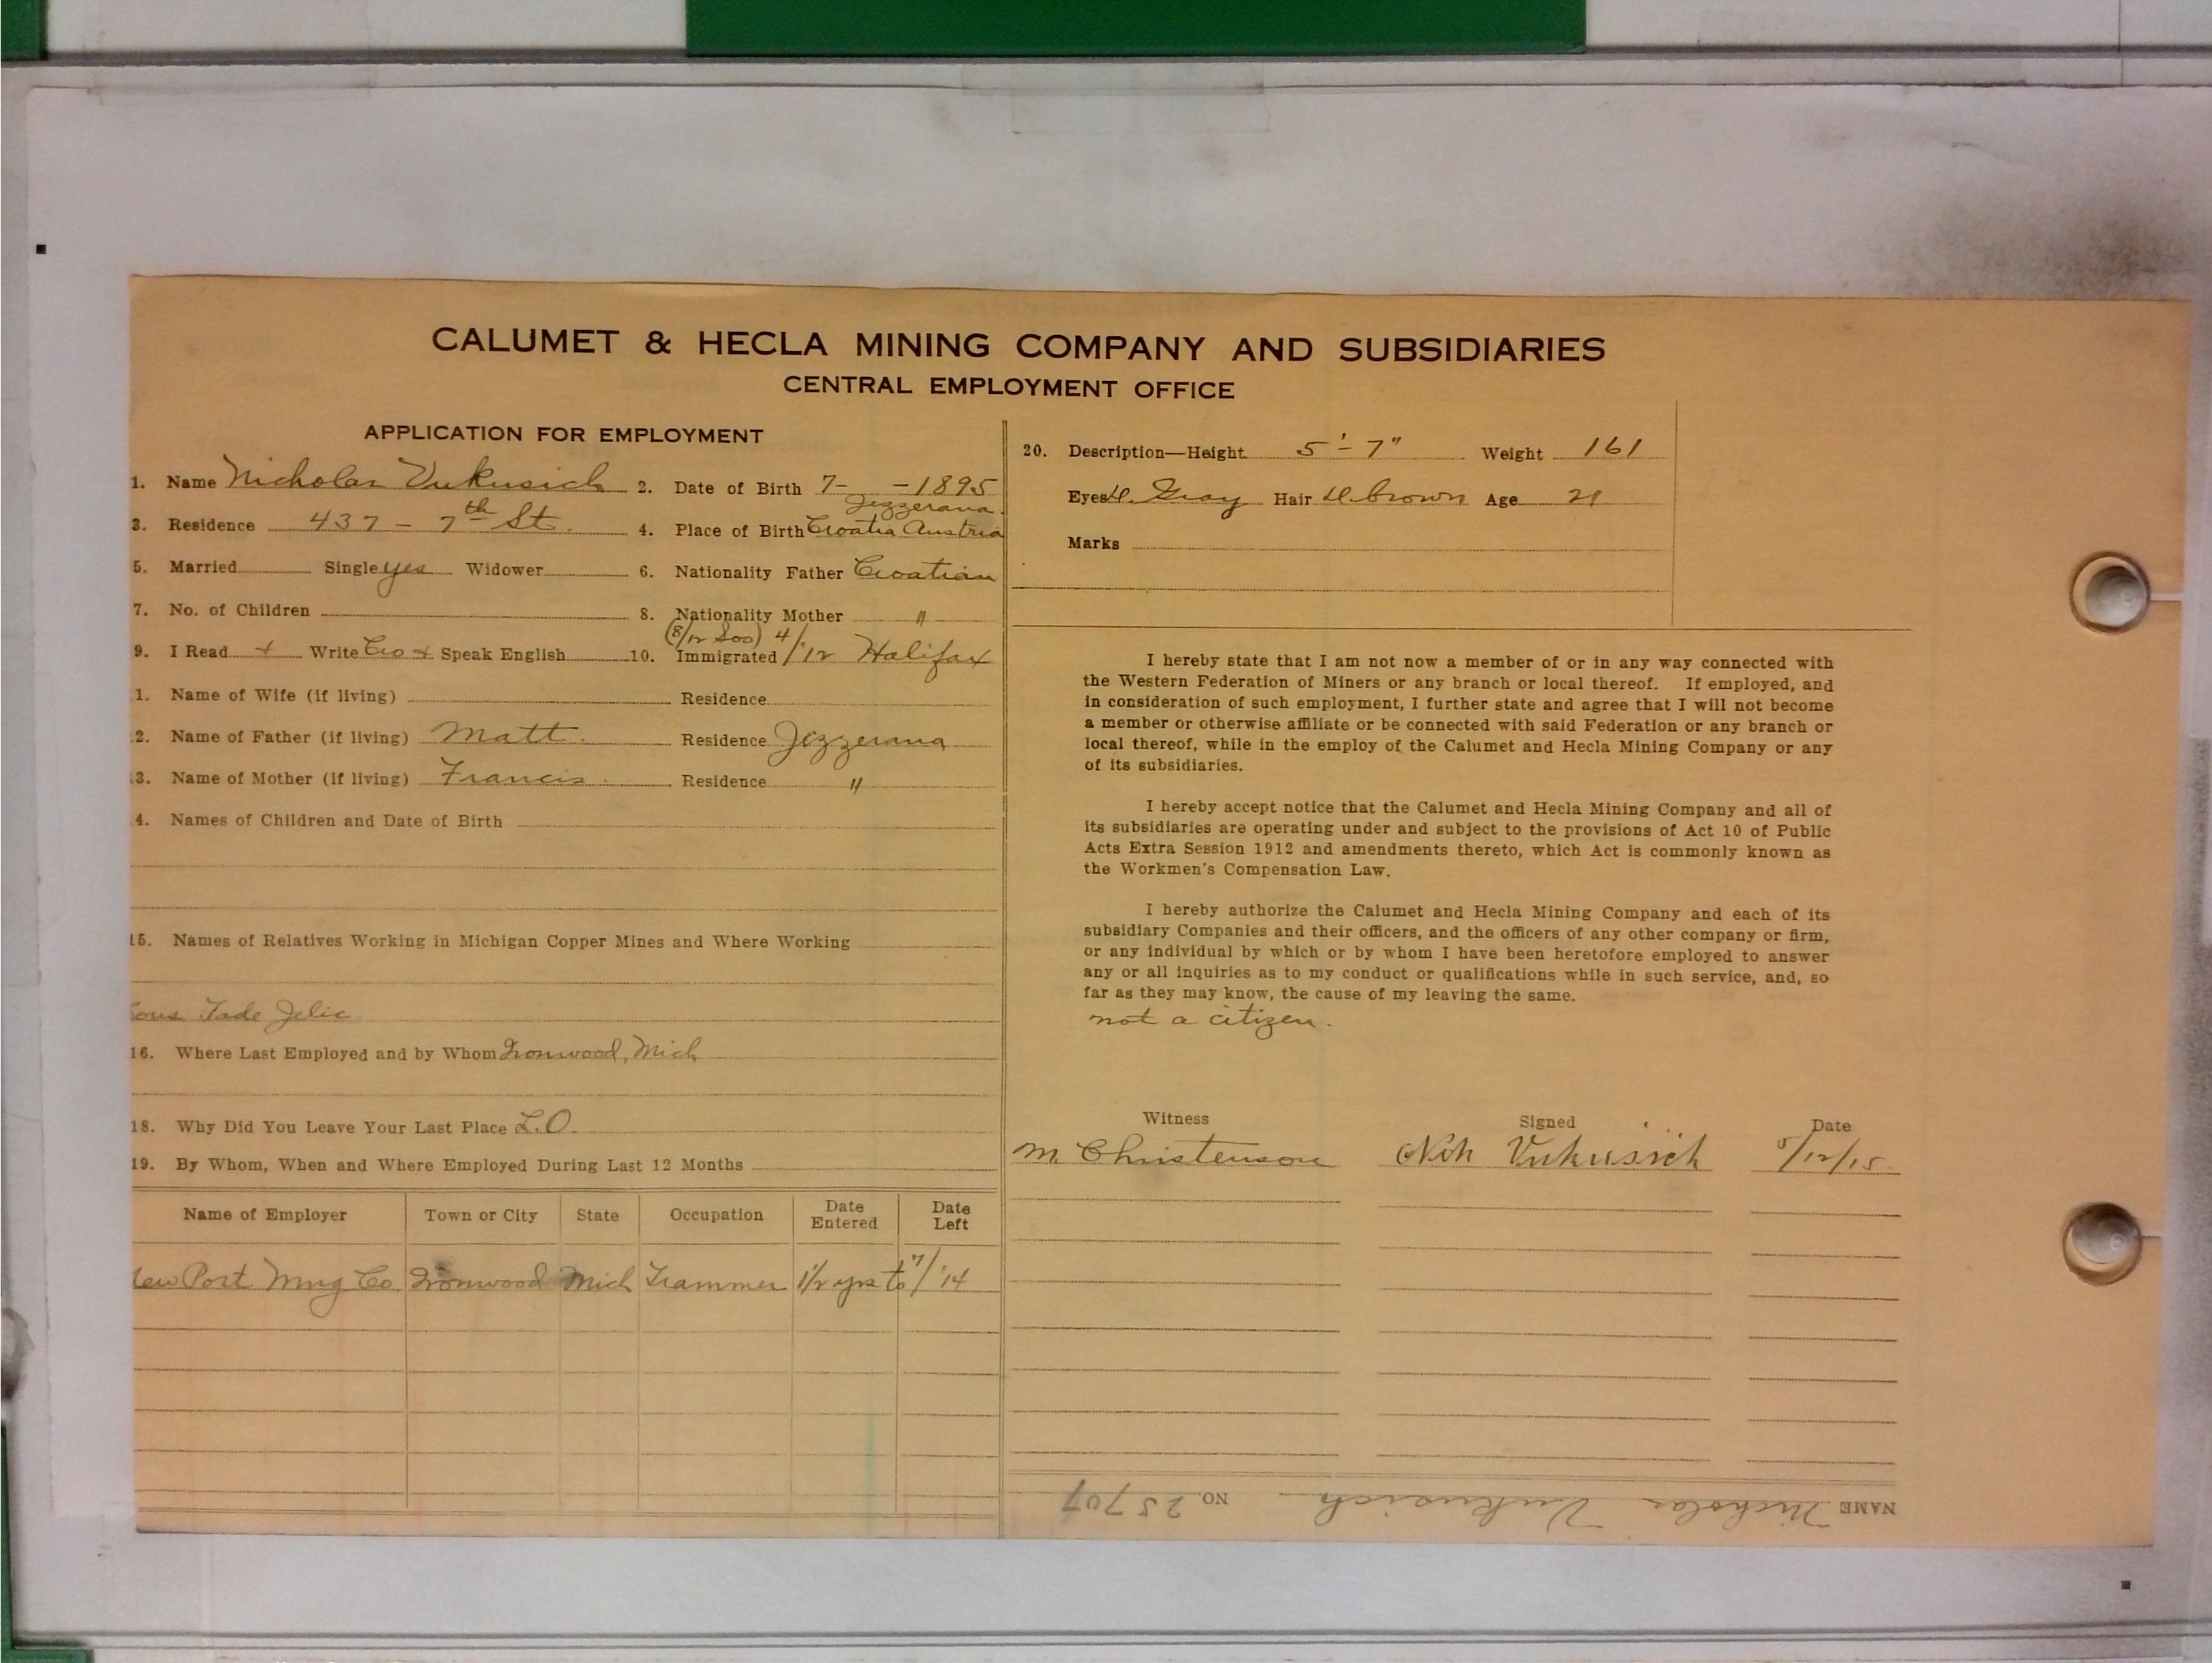 CALUMET & HECLA MINING COMPANY AND SUBSIDIARIES
CENTRAL EMPLOYMENT OFFICE
APPLICATION FOR EMPLOYMENT
1. Name Nicholas Vukusich 2. Date of Birth 7- -1895
Jezzerana
3. Residence 437 - 7th St. 4. Place of Birth Croatia Austria
5. Married Single yes Widower 6. Nationality Father Croatian
7. No. of Children 8. Nationality Mother "
(8/12 Soo) 4/
9. I Read + Write Cro + Speak English 10. Immigrated '12 Halifax
1. Name of Wife (if living) Residence
2. Name of Father (if living) Matt. Residence Jezzerana
3. Name of Mother (if living) Francis. Residence "
4. Names of Children and Date of Birth
15. Names of Relatives Working in Michigan Copper Mines and Where Working
Jelic
16. Where Last Employed and by Whom Ironwood, Mich
18. Why Did You Leave Your Last Place L.O.
19. By Whom, When and Where Employed During Last 12 Months
Name of Employer Town or City State Occupation Date Entered Date Left
ew Port Mng Co Ironwood Mich Trammer 1/2 yrs to 7/'14
20. Description—Height 5'-7" Weight 161
Eyes D. Gray Hair D. brown Age
Marks
I hereby state that I am not now a member of or in any way connected with
the Western Federation of Miners or any branch or local thereof. If employed, and
in consideration of such employment, I further state and agree that I will not become
a member or otherwise affiliate or be connected with said Federation or any branch or
local thereof, while in the employ of the Calumet and Hecla Mining Company or any
of its subsidiaries.
I hereby accept notice that the Calumet and Hecla Mining Company and all of
its subsidiaries are operating under and subject to the provisions of Act 10 of Public
Acts Extra Session 1912 and amendments thereto, which Act is commonly known as
the Workmen's Compensation Law.
I hereby authorize the Calumet and Hecla Mining Company and each of its
subsidiary Companies and their officers, and the officers of any other company or firm,
or any individual by which or by whom I have been heretofore employed to answer
any or all inquiries as to my conduct or qualifications while in such service, and, so
far as they may know, the cause of my leaving the same.
not a citizen.
Witness Signed Date
M Christenson Nik Vukusich 5/12/15.
NAME Nicholas Vukusich NO. 25707